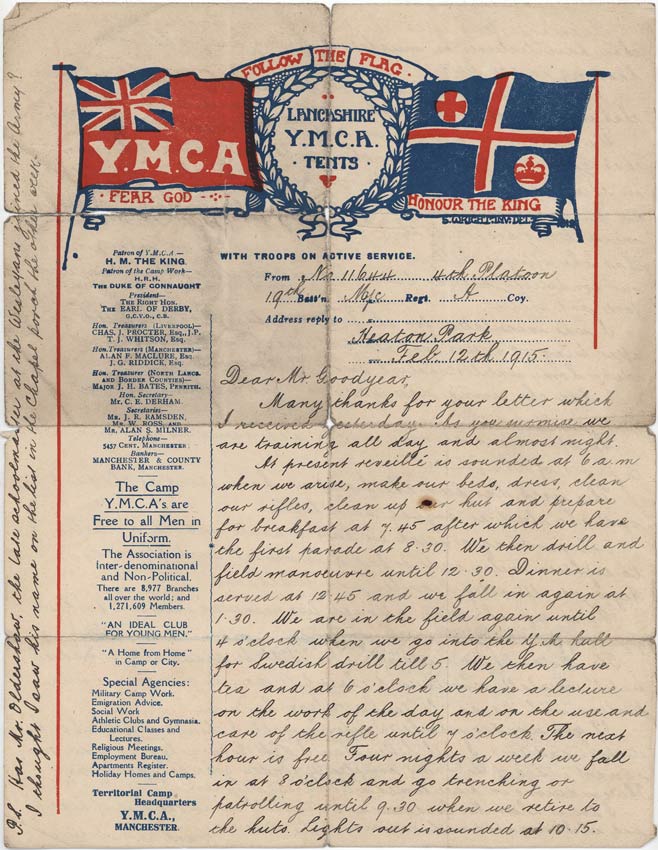 FOLLOW THE FLAG
LANCASHIRE
Y.M.C.A.
TENTS
Y.M.C.A
FEAR GOD
HONOUR THE KING
WITH TROOPS ON ACTIVE SERVICE.
From No 11644 4th Platoon
19th Batt'n. M/c Regt. A Coy.
Address reply to
Heaton Park
Feb 12th 1915.
Patron of Y.M.C.A—
H. M. THE KING
Patron of the Camp Work—
H.R.H.
THE DUKE OF CONNAUGHT
President—
THE RIGHT HON.
THE EARL OF DERBY,
G.C.V.O., C.B.
Hon. Treasurers (LIVERPOOL)—
CHAS. J. PROCTER, Esq., J.P.
T. J. WHITSON, Esq.
Hon. Treasurers (MANCHESTER)—
ALAN F. MACLURE, Esq.
J. G. RIDDICK, Esq.
Hon. Treasurer (NORTH LANCS.
AND BORDER COUNTIES)—
MAJOR J. H. BATES, PENRITH.
Hon. Secretary—
MR. C. E. DERHAM.
Secretaries—
MR. J. R. RAMSDEN,
MR. W. ROSS, AND
MR. ALAN S. MILNER.
Telephone—
5457 CENT. MANCHESTER.
Bankers—
MANCHESTER & COUNTY
BANK, MANCHESTER.
The Camp
Y.M.C.A's are
Free to all Men in
Uniform.
The Association is
Inter-denominational
and Non-Political.
There are 8,977 Branches
all over the world; and
1,271,609 Members.
"AN IDEAL CLUB
FOR YOUNG MEN."
"A Home from Home"
in Camp or City.
Special Agencies:
Military Camp Work.
Emigration Advice.
Social Work
Athletic Clubs and Gymnasia.
Educational Classes and
Lectures.
Religious Meetings.
Employment Bureau.
Apartments Register.
Holiday Homes and Camps.
Territorial Camp
Headquarters
Y.M.C.A.,
MANCHESTER.
Dear Mr Goodyear,
Many thanks for your letter which
I received yesterday. As you surmise we
are training all day and almost night.
At present reveillé is sounded at 6 a.m
when we arise, make our beds, dress, clean
our rifles, clean up our hut and prepare
for breakfast at 7.45 after which we have
the first parade at 8.30. We then drill and
field manoeuvre until 12.30. Dinner is
served at 12.45 and we fall in again at
1.30. We are in the field again until
4 o'clock when we go into the Y.M. hull
for Swedish drill till 5. We then have
tea and at 6 o'clock we have a lecture
on the work of the day and on the use and
care of the rifle until 7 o'clock. The next
hour is free. Four nights a week we fall
in at 8 o'clock and go trenching or
patrolling until 9.30 when we retire to
the huts. Lights out is sounded at 10.15.
P.S. Has Mr. Oldershaw, the late schoolmaster at the Wesleyans joined the Army?
I thought I saw his name on the list in the Chapel porch the other week.